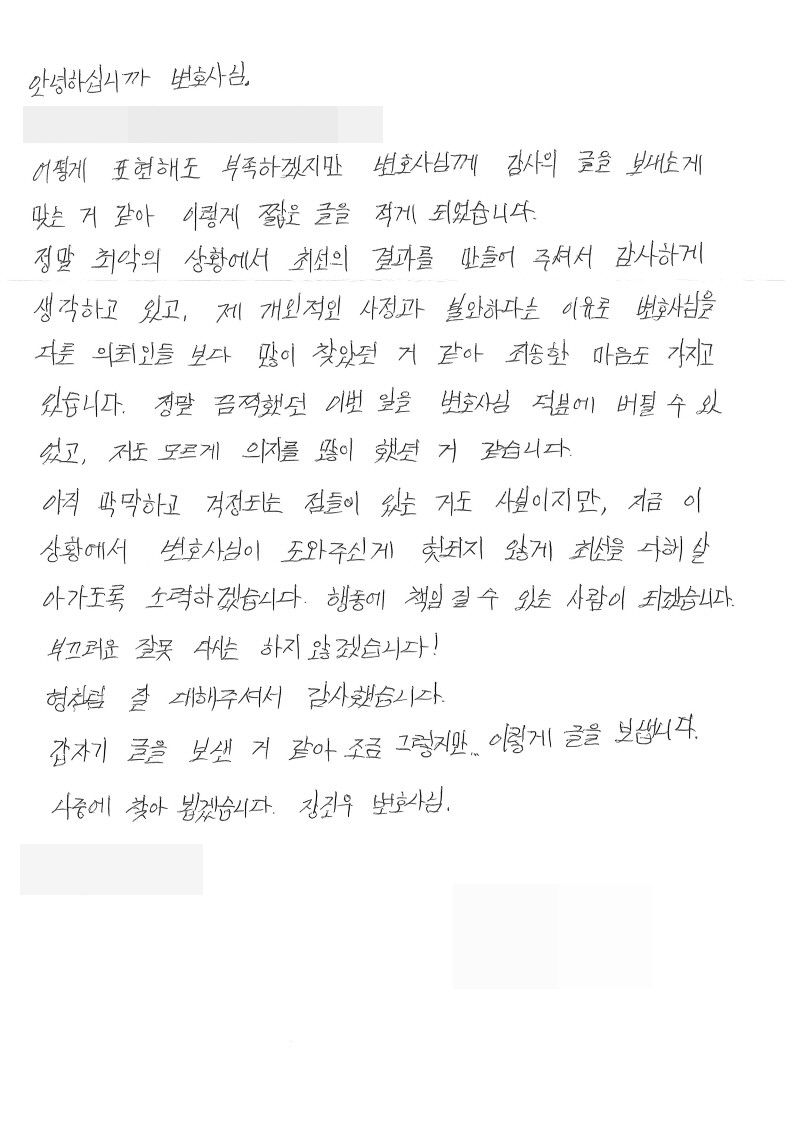 안녕하십니까 변호사님.
어떻게 표현해도 부족하겠지만 변호사님께 감사의 글을 보내는게
맞는 거 같아 이렇게 짧은 글을 적게 되었습니다.
정말 최악의 상황에서 최선의 결과를 만들어 주셔서 감사하게
생각하고 있고, 제 개인적인 사정과 불안하다는 이유로 변호사님을
다른 의뢰인들 보다 많이 찾았던 거 같아 죄송한 마음도 가지고
있습니다. 정말 끔찍했던 이번 일을 변호사님 덕분에 버틸 수 있
었고, 저도 모르게 의지를 많이 했던 거 같습니다.
아직 막막하고 걱정되는 점들이 있는 거도 사실이지만, 지금 이
상황에서 변호사님이 도와주신게 헛되지 않게 최선을 다해 살
아가도록 노력하겠습니다. 행동에 책임 질 수 있는 사람이 되겠습니다.
부끄러운 잘못 다시는 하지 않겠습니다!
형처럼 잘 대해주셔서 감사했습니다.
갑자기 글을 보낸 거 같아 조금 그렇지만... 이렇게 글을 보냅니다.
나중에 찾아 뵙겠습니다. 장진우 변호사님.